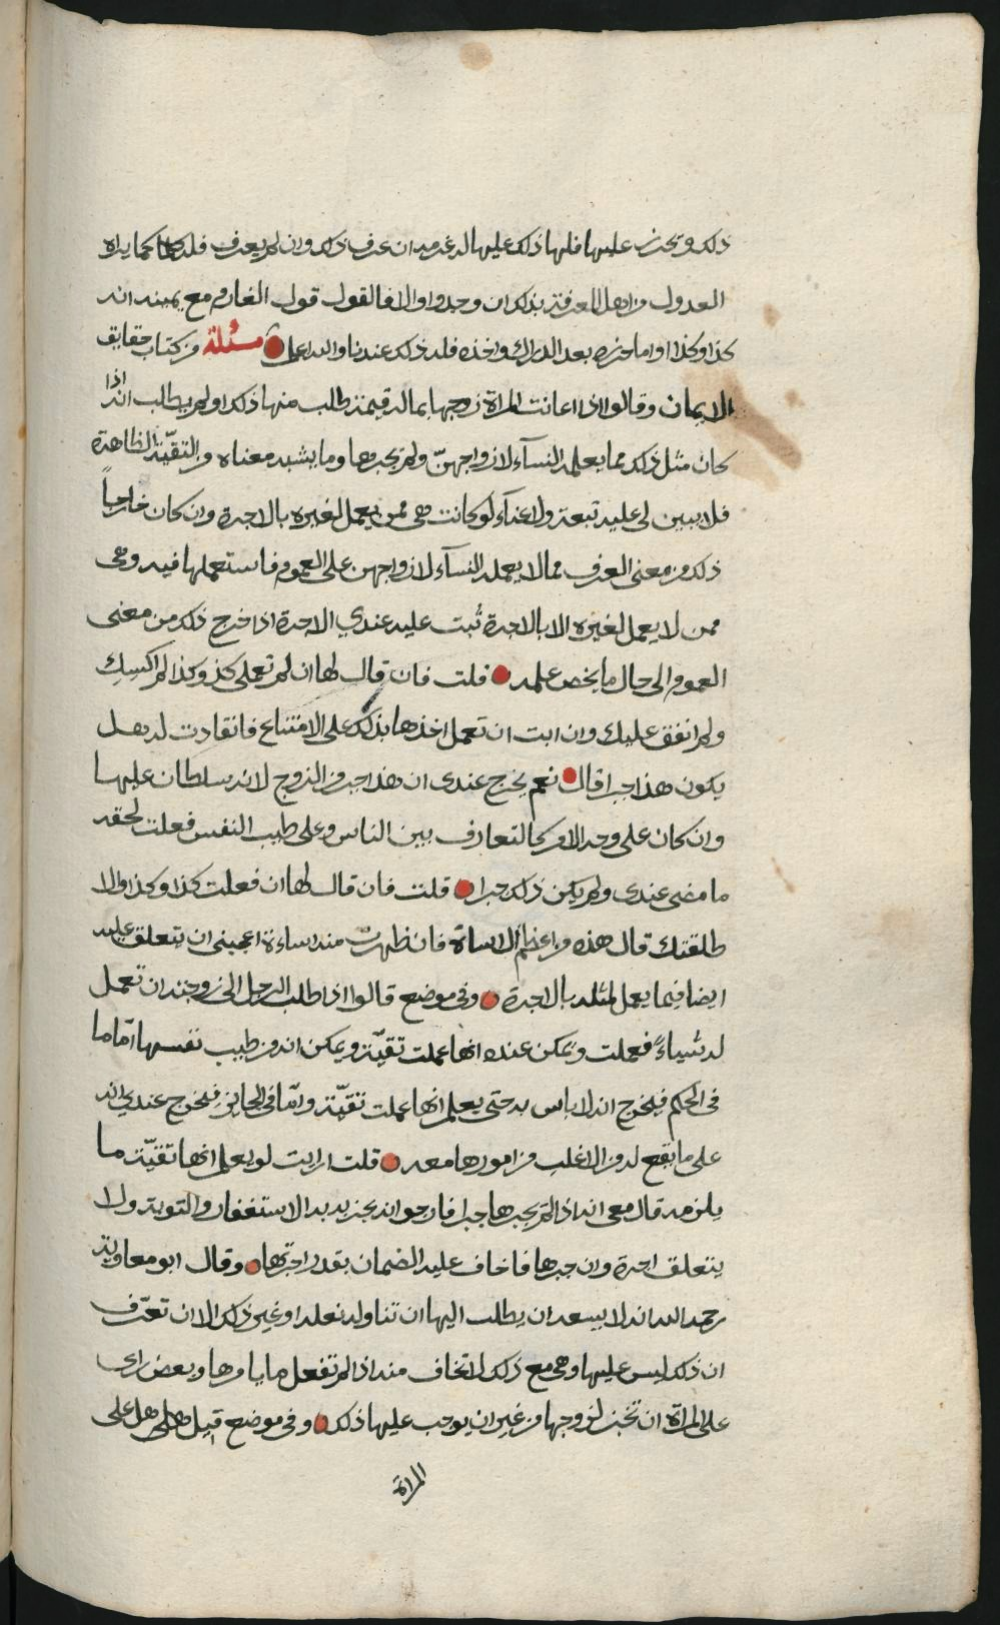 ذلك وتحزر عليها فلها ذلك عليها لغرمه ان عرف ذلك وان لم يعرف فله كما يراه
العدول من اهل المعرفة بذلك ان وجدوا والا فالقول قول الغارم مع يمينه انه
كذا وكذا واما حزره بعد الدراك واخذه فله ذلك عندنا والله اعلم مسئلة من كتاب حقايق
الايمان وقالوا اذا اعانت المراة زوجها بماله قيمة طلب منها ذلك او لم يطلب انه اذا
كان مثل ذلك مما يعمله النسآء لازواجهنّ ولم يجبرها وما يشبه معناه والتقيّة الظاهرة
فلا يبين لي عليه تبعة ولا عنآء لو كانت هي ممن يعمل لغيره بالاجرة وان كان خارجاً
ذلك من معنى العرف مما لا يعمله النسآء لازواجهن على العموم فاستعملها فيه وهي
ممن لا يعمل لغيره الا بالاجرة ثبت عليه عندي الاجرة اذا خرج ذلك من معنى
العموم الى حال ما يخص علمه قلت فان قال لها ان لم تعملي كذا وكذا لم اكسك
ولم انفق عليك وان ابت ان تعمل اخذها بذلك على الامتناع فانقادت له هل
يكون هذا جبرا قال نعم يخرج عندي ان هذا جبر من الزوج لانه سلطان عليها
وان كان على وجه الامر كالتعارف بين الناس وعلى طيب النفس فعلت لحقه
ما مضى عندي ولم يكن ذلك جبرا قلت فان قال لها ان فعلت كذا وكذا والا
طلقتك قال هذه من اعظم الاساة فان ظهرت منه اساءة اعجبني ان يتعلق عليه
ايضا فيما يعمل لمثله بالاجرة وفي موضع قالوا اذا طلب الرجل الى زوجته ان تعمل
له شياءً فعملت ويمكن عنده انها عملت تقيّة ويمكن انه من طيب نفسها امّا ما
في الحكم فيخرج انه لا باس به حتى يعلم انها عملت تقيّة وامّا في الجايز فيخرج عندي انه
على ما يقع له من الاغلب من امورها معه قلت ارايت لو يعلم انها تقيّة ما
يلزمه قال معي انه اذا لم يجبرها جبرا فارجوا انه يجزيه الاستغفار والتوبة ولا
يتعلق اجرة وان جبرها فاخاف عليه الضمان بقدر اجرتها وقال ابو معاوية
رحمه الله انه لا يسعه ان يطلب اليها ان تناوله نعله او غير ذلك الا ان تعرّف
ان ذلك ليس عليها وهي مع ذلك لا تخاف منه اذا لم تفعل ما يامرها وبعض راى
على المراة ان تخبز لزوجها من غير ان يوجب عليها ذلك وفي موضع قيل هل على
المراة